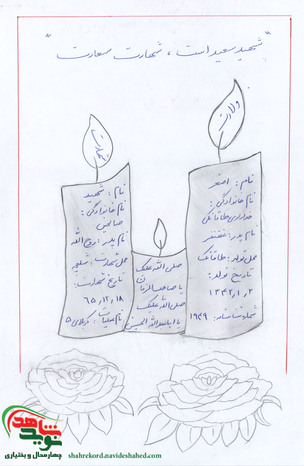 "شهید سعید است، شهادت سعادت"
ولادت
نام: اصغر
نام خانوادگی:
نام پدر: غضنفر
محل تولد: طاقانک
تاریخ تولد:
۱۳۴۲/۱/۲
شماره شناسنامه: ۱۹۴۹
شهادت
نام: شهید
نام خانوادگی:
صالحی
نام پدر: روح الله
محل شهادت: شلمچه
تاریخ شهادت:
۶۵/۱۲/۱۸
نام عملیات: کربلای ۵
صلی الله علیک
یا صاحب الزمان
صلی الله علیک
یا ابا عبدالله الحسین
نوید شاهد
چهارمحال و بختیاری
shahrekord.navideshahed.com